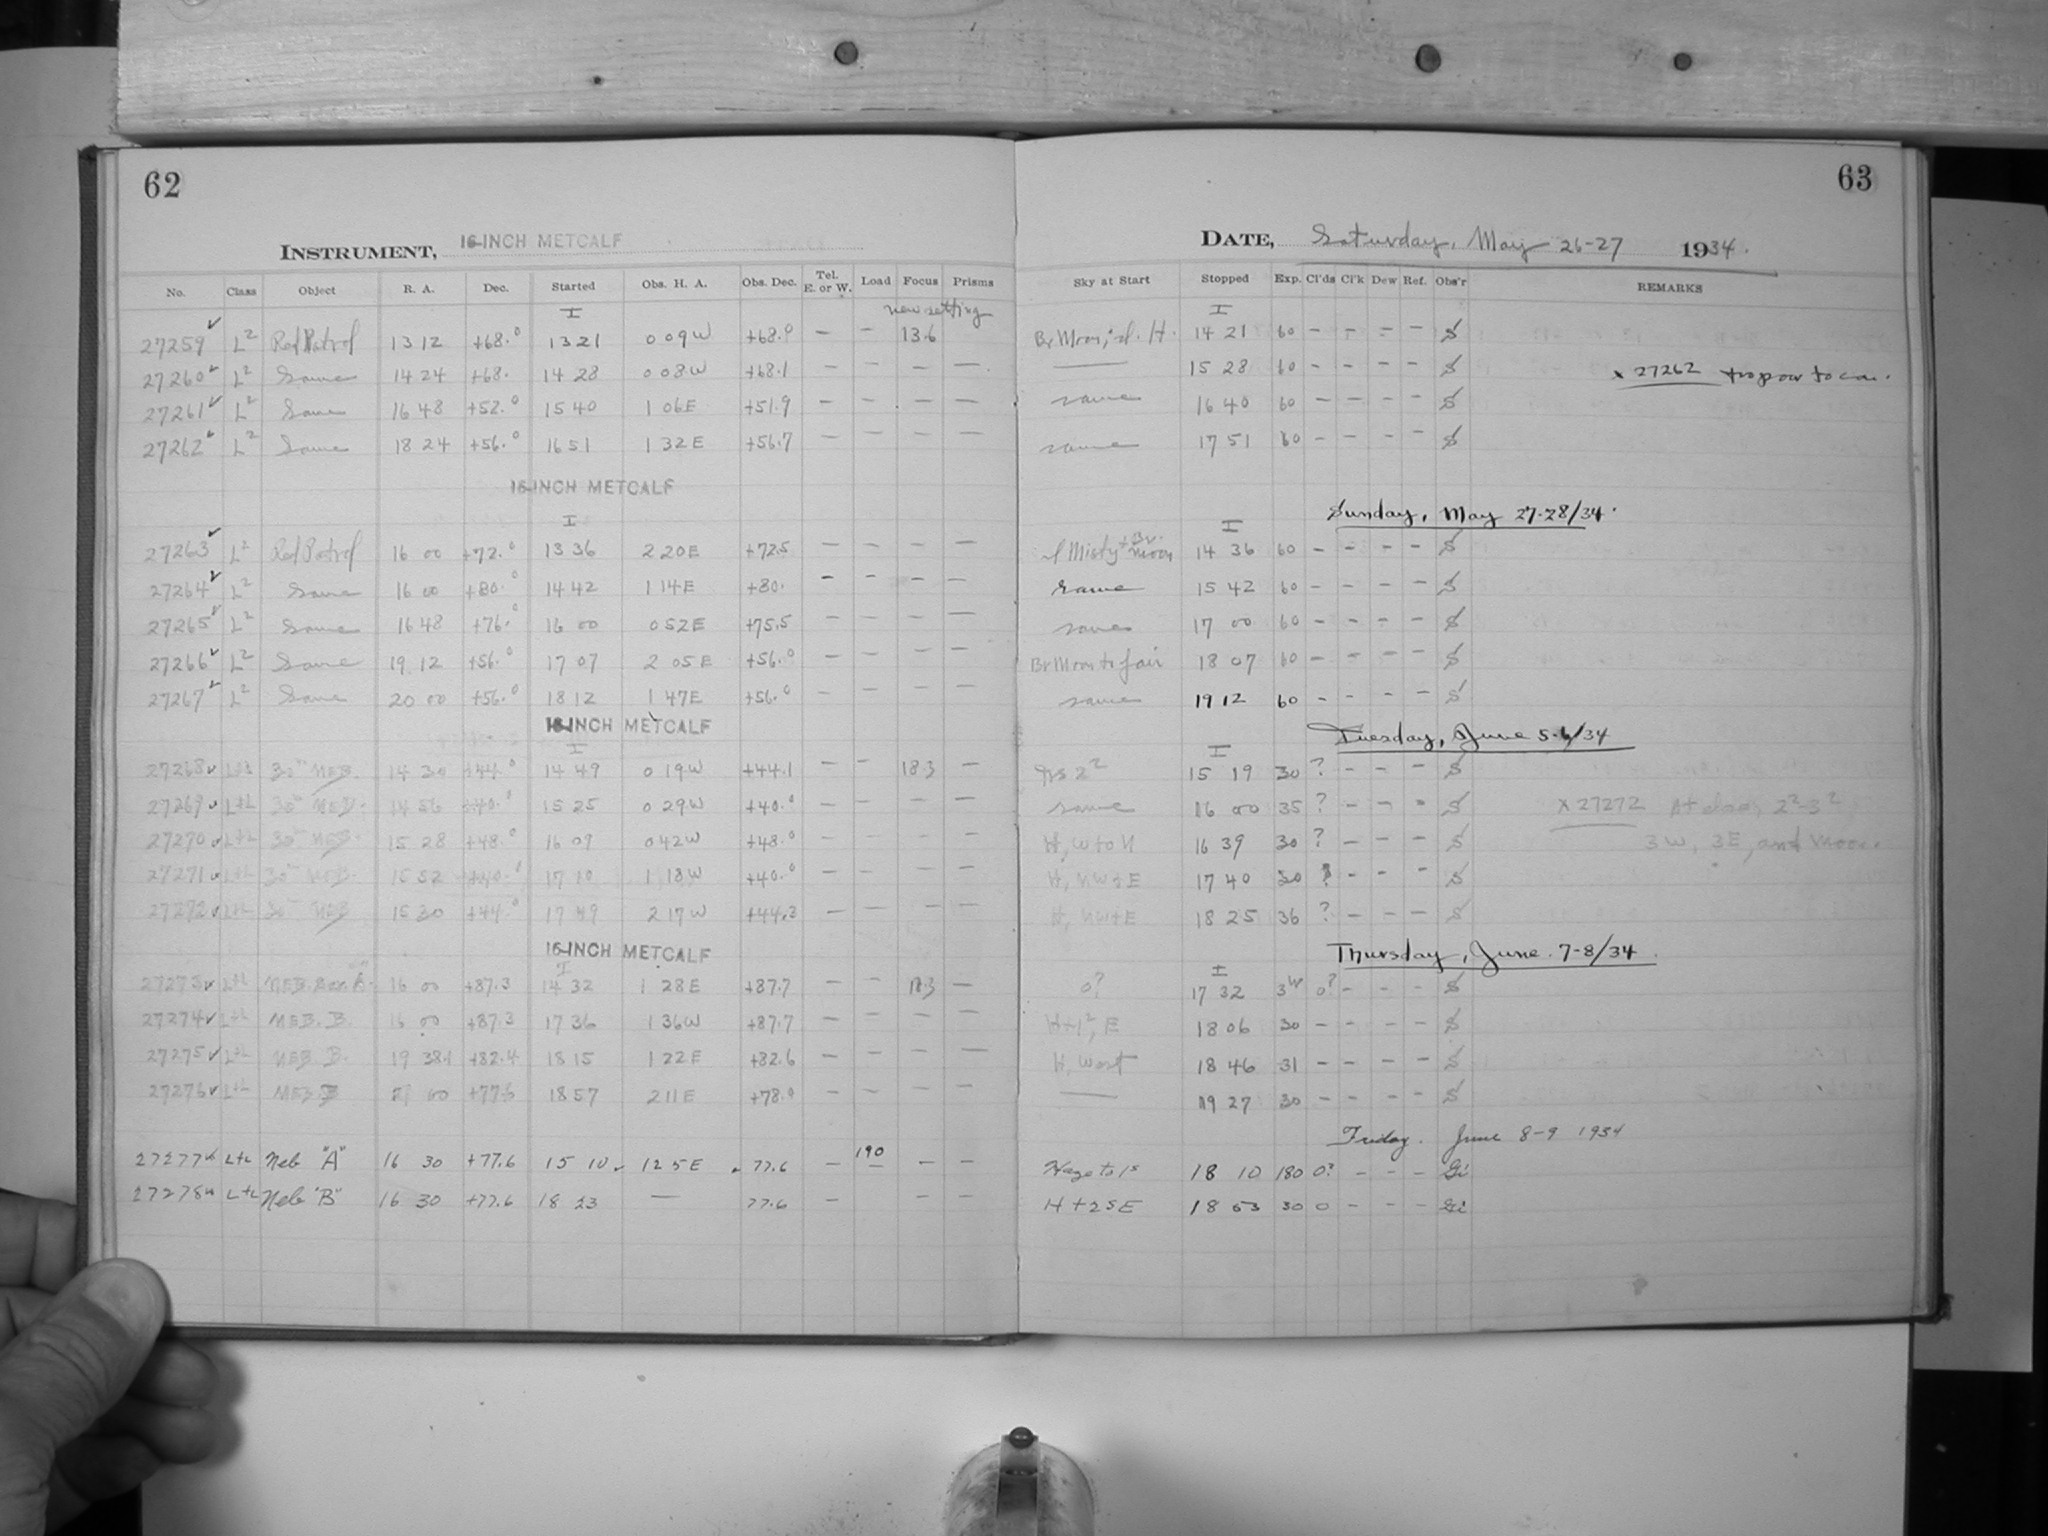 62
INSTRUMENT, 16-INCH METCALF
No. Class Object R. A. Dec. Started Obs. H. A. Obs. Dec. Tel. E. or W. Load Focus Prisms
I new setting
27259 L2 Red Patrol 13 12 +68.0 13 21 0 09W +68.0 — — 13.6
27260 L2 Same 14 24 +68. 14 28 0 08W +68.1 — — — —
27261 L2 Same 16 48 +52.0 15 40 1 06E +51.9 — — — —
27262 L2 Same 18 24 +56.0 16 51 1 32E +56.7 — — — —
16-INCH METCALF
I
27263 L2 Red Patrol 16 00 +72.0 13 36 2 20E +72.5 — — — —
27264 L2 Same 16 00 +80.0 14 42 1 14E +80. — — — —
27265 L2 Same 16 48 +76.0 16 00 0 52E +75.5 — — — —
27266 L2 Same 19 12 +56.0 17 07 2 05E +56.0 — — — —
27267 L2 Same 20 00 +56.0 18 12 1 47E +56.0 — — — —
16-INCH METCALF
I
27268 L+L 30m NEB. 14 30 +44.0 14 49 0 19W +44.1 — — 18.3 —
27269 L+L 30m NEB. 14 56 +40.0 15 25 0 29W +40.0 — — — —
27270 L+L 30m NEB. 15 28 +48.0 16 09 0 42W +48.0 — — — —
27271 L+L 30m NEB. 15 52 +40.0 17 10 1 18W +40.0 — — — —
27272 L+L 30m NEB 15 30 +44.0 17 49 2 17W +44.3 — — — —
16-INCH METCALF
I
27273 L+L NEB. "A" 16 00 +87.3 14 32 1 28E +87.7 — — 18.3 —
27274 L+L NEB. B. 16 00 +87.3 17 36 1 36W +87.7 — — — —
27275 L+L NEB. B. 19 38.1 +82.4 18 15 1 22E +82.6 — — — —
27276 L+L NEB B 21 00 +77.6 18 57 2 11E +78.0 — — — —
27277 L+L Neb "A" 16 30 +77.6 15 10 1 25E 77.6 — 190 — —
27278 L+L Neb "B" 16 30 +77.6 18 23 — 77.6 — — —
63
DATE, Saturday, May 26-27 1934.
Sky at Start Stopped Exp. Cl'ds Cl'k Dew Ref. Obs'r REMARKS
I
Br Moon; sl. H. 14 21 60 — — — — S
— 15 28 60 — — — — S x 27262 too poor to
same 16 40 60 — — — — S
same 17 51 60 — — — — S
Sunday, May 27-28/34.
I
sl Misty + Br. moon 14 36 60 — — — — S
same 15 42 60 — — — — S
same 17 00 60 — — — — S
Br Moon to fair 18 07 60 — — — — S
same 19 12 60 — — — — S
Tuesday, June 5-6/34
I
2² 15 19 30 ? — — — S
same 16 00 35 ? — — — S x 27272 At close, 2²-3²
H, W to N 16 39 30 ? — — — S 3W, 3E, and moon.
H, NW+E 17 40 30 ? — — — S
H, NW+E 18 25 36 ? — — — S
Thursday, June. 7-8/34.
I
0? 17 32 3W 0? — — — S
H+1², E 18 06 30 — — — — S
H, West 18 46 31 — — — — S
— 19 27 30 — — — — S
Friday. June 8-9 1934
Haze to 1s 18 10 180 0? — — — Gi
H + 2 S E 18 53 30 0 — — — Gi